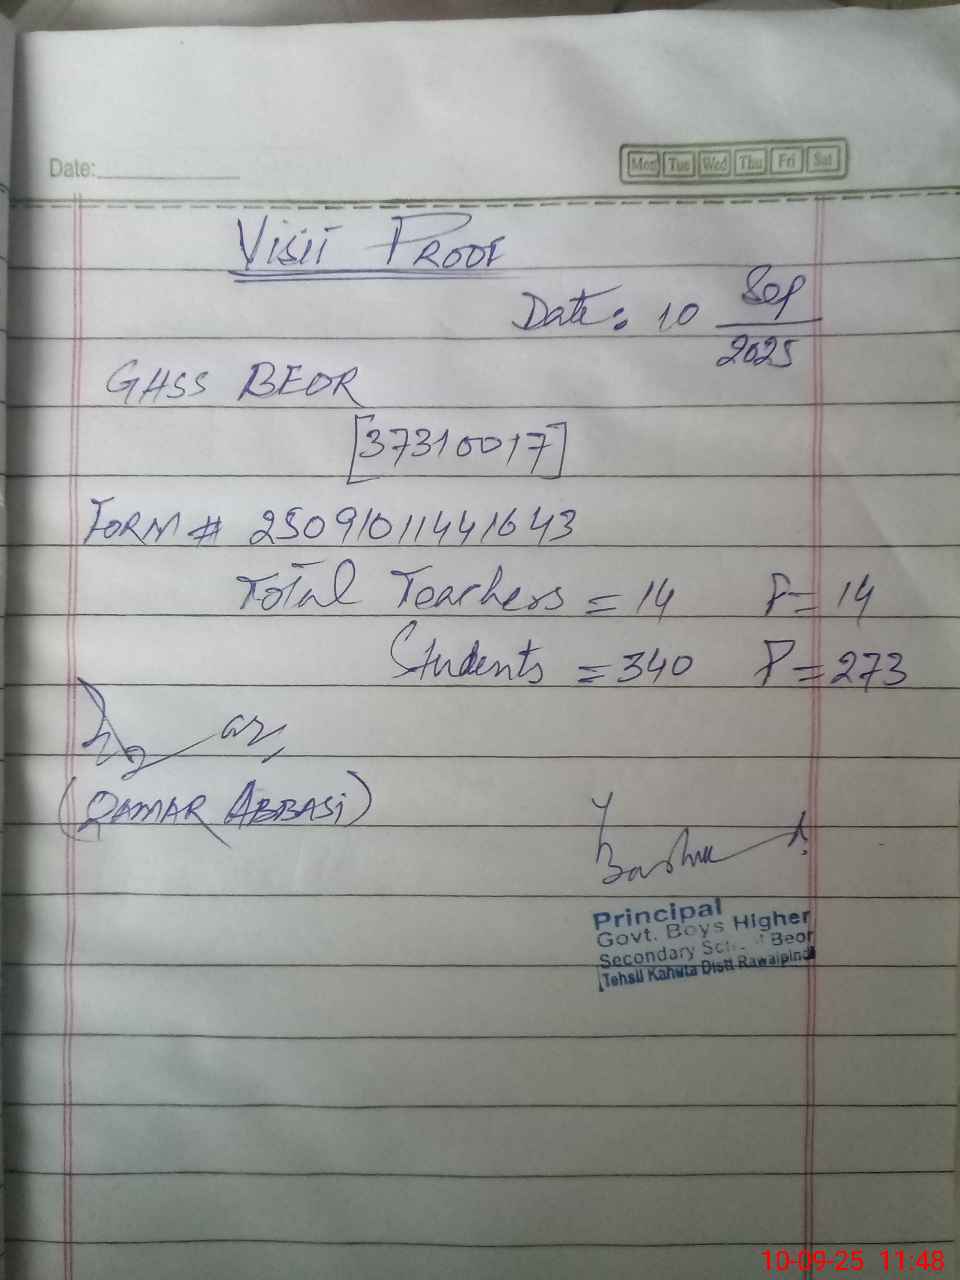 Date:
Mon Tue Wed Thu Fri Sat
VISIT PROOF
Date: 10 Sep
2025
GHSS BEOR
[37310017]
FORM # 25091011441643
Total Teachers = 14 P = 14
Students = 340 P = 273
(QAMAR ABBASI)
Principal
Govt. Boys Higher
Secondary Beor
Tehsil Kahuta Distt Rawalpindi
10-09-25 11:48